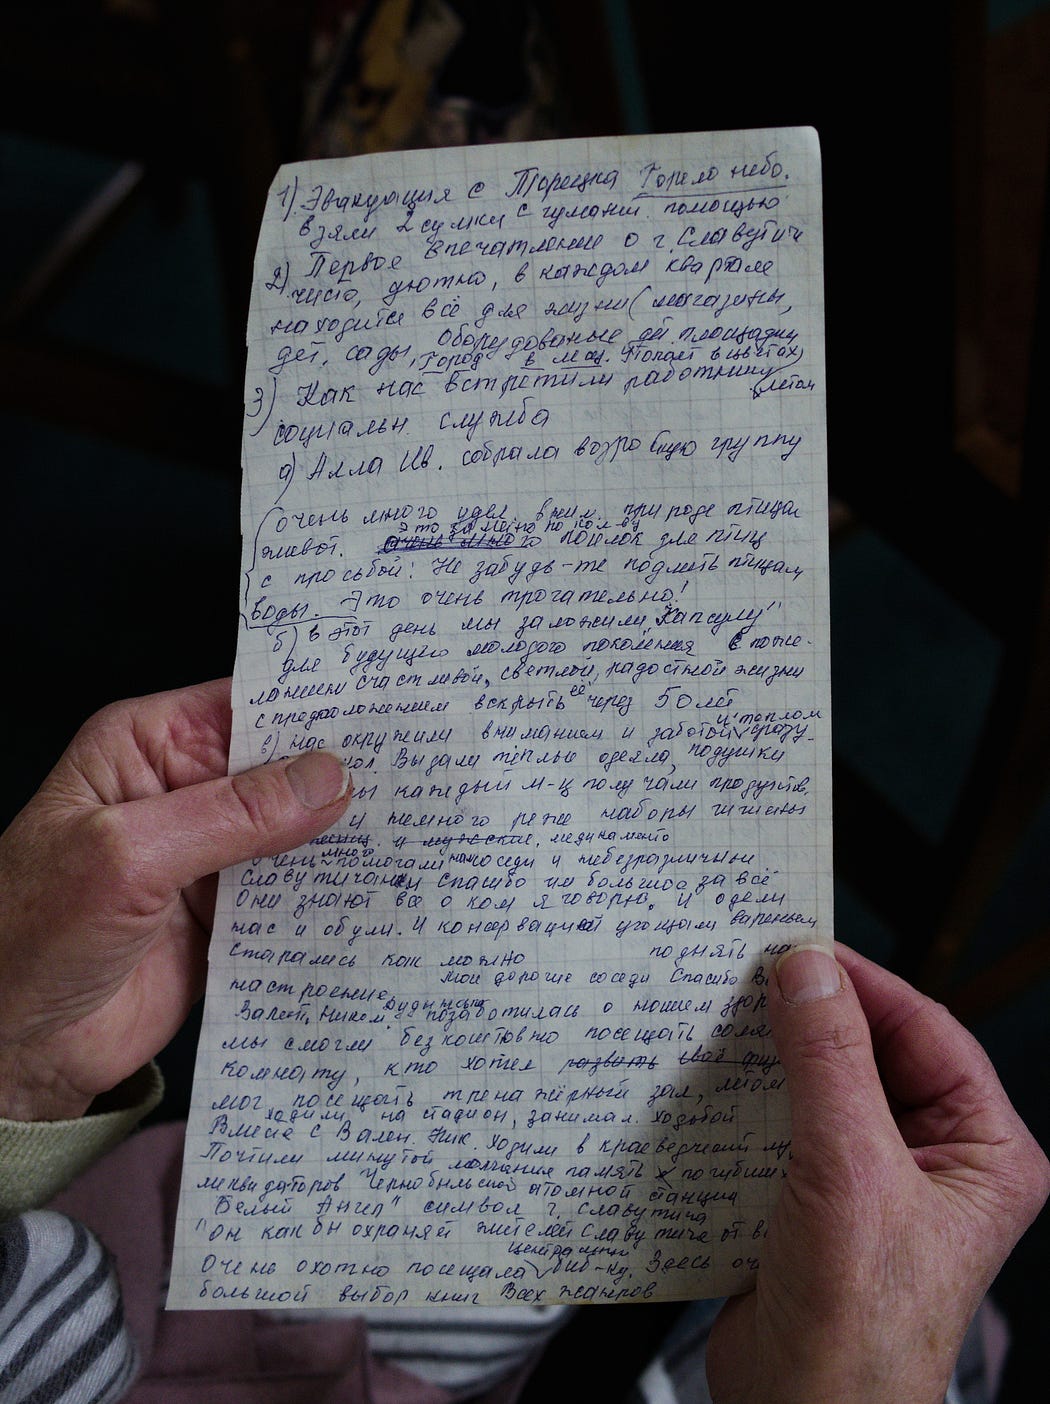 1) Эвакуация с Торецка Горело небо.
взяли 2 сумки с гуманит. помощью
2) Первое впечатление о г. Славутич
чисто, уютно, в каждом квартале
находится всё для жизни (магазины,
дет. сады, оборудованые дет. площадки
город в лесу. Утопает в цветах)
летом
3) Как нас встретили работники
социальн. служба
а) Алла Ив. собрала возро
группу
очень много удел. вним. природе птицам
живот. очень много поилок для птиц
Это заметно по кол-ву
с просьбой: Не забудь-те подлить птицам
воды. Это очень трогательно!
б) в этот день мы заложили "Капсулу"
для будущего молодого поколения с поже-
ланием счастливой, светлой, радостной жизни
с предположением вскрыть её через 50 лет
и теплом
в) нас окружили вниманием и заботой сразу
Выдали тёплые одеяла, подушки
каждый м-ц получали продукты,
и немного реже наборы гигиены
и мужские, медикаменты
Очень много помогали нам соседи и небезразличные
славутичане спасибо им большое за всё
Они знают все о ком я говорю. И одели
нас и обули. И консервацией угощали вареньем
Старались как можно поднять на
настроение. Мои дорогие соседи Спасибо
Вален. Никол. позаботилась о нашем
мы смогли безкоштовно посещать
комнату, кто хотел развить своё
мог посещать тренажёрный зал, летом
ходили на стадион, занимал. ходьбой
Вместе с Вален. Ник. ходили в краеведческий
Почтили минутой молчание память погибших
ликвидаторов Чернобыльской атомной станции
"Белый Ангел" символ г. Славутича
"он как бы охраняет жителей Славутича от
центральную
Очень охотно посещала биб-ку. Здесь
большой выбор книг всех жанров